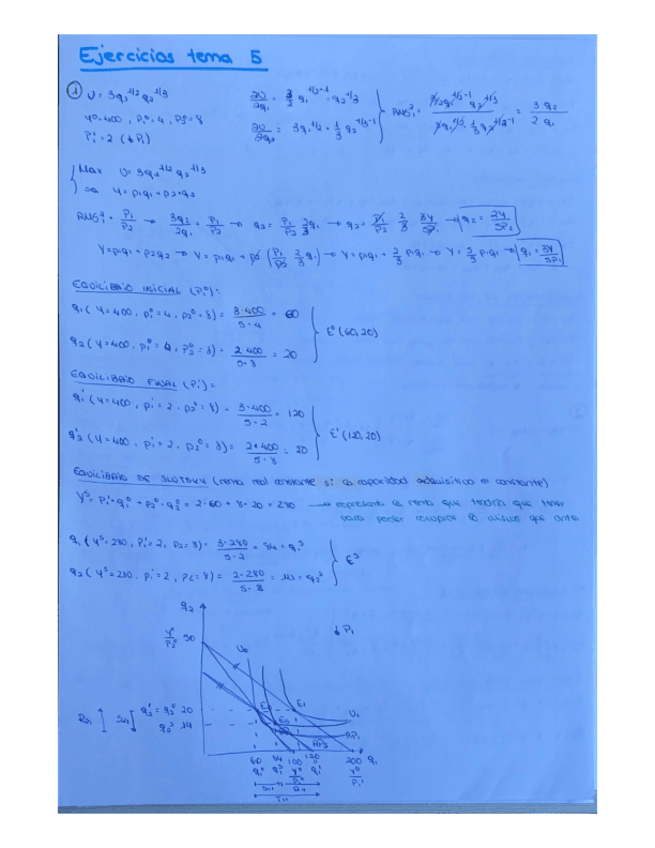 Ejercicios tema 5
① U = 3q₁^1/2 q₂^1/3
Y⁰=400, P₁⁰=4, P₂⁰=8
P₁'=2 (↓P₁)
∂U/∂q₁ = 3/2 q₁^1/2-1 · q₂^1/3
∂U/∂q₂ = 3q₁^1/2 · 1/3 q₂^1/3-1
= 3 q₂ / 2 q₁
Max U = 3q₁^1/2 q₂^1/3
sa Y = p₁q₁ + p₂q₂
= P₁/P₂ → 3q₂/2q₁ = P₁/P₂ → q₂ = P₁/P₂ 2/3 q₁ → q₂ = P₁/P₂ 2/3 3Y/5P₁ → q₂ = 2Y/5P₂
Y = p₁q₁ + p₂q₂ → Y = p₁q₁ + p₂ (P₁/P₂ 2/3 q₁) → Y = p₁q₁ + 2/3 p₁q₁ → Y = 5/3 p₁q₁ → q₁ = 3Y/5P₁
EQUILIBRIO INICIAL (P₁⁰):
q₁ (Y=400, p₁⁰=4, p₂⁰=8) = 3·400/5·4 = 60
q₂ (Y=400, p₁⁰=4, p₂⁰=8) = 2·400/5·8 = 20
E⁰ (60,20)
EQUILIBRIO FINAL (P₁'):
q₁' (Y=400, p₁'=2, p₂⁰=8) = 3·400/5·2 = 120
q₂' (Y=400, p₁'=2, p₂⁰=8) = 2·400/5·8 = 20
E' (120,20)
EQUILIBRIO DE SLUTSKY (renta real constante si la capacidad adquisitiva es constante)
Yˢ = P₁'·q₁⁰ + P₂⁰·q₂⁰ = 2·60 + 8·20 = 280 → representa la renta que tendría que tener
para poder comprar lo mismo que antes
q₁ (Yˢ=280, P₁'=2, P₂=8) = 3·280/5·2 = 84 = q₁ˢ
q₂ (Yˢ=280, p₁'=2, p₂=8) = 2·280/5·8 = 14 = q₂ˢ
Eˢ
q₂
↓P₁
Y⁰/P₂⁰ 50
U₀
E₀
E₁
q₂' = q₂⁰ 20
q₂ˢ 14
U₁
60 84 100 120 200 q₁
q₁⁰ q₁ˢ Y⁰/P₁⁰ q₁' Y⁰/P₁'